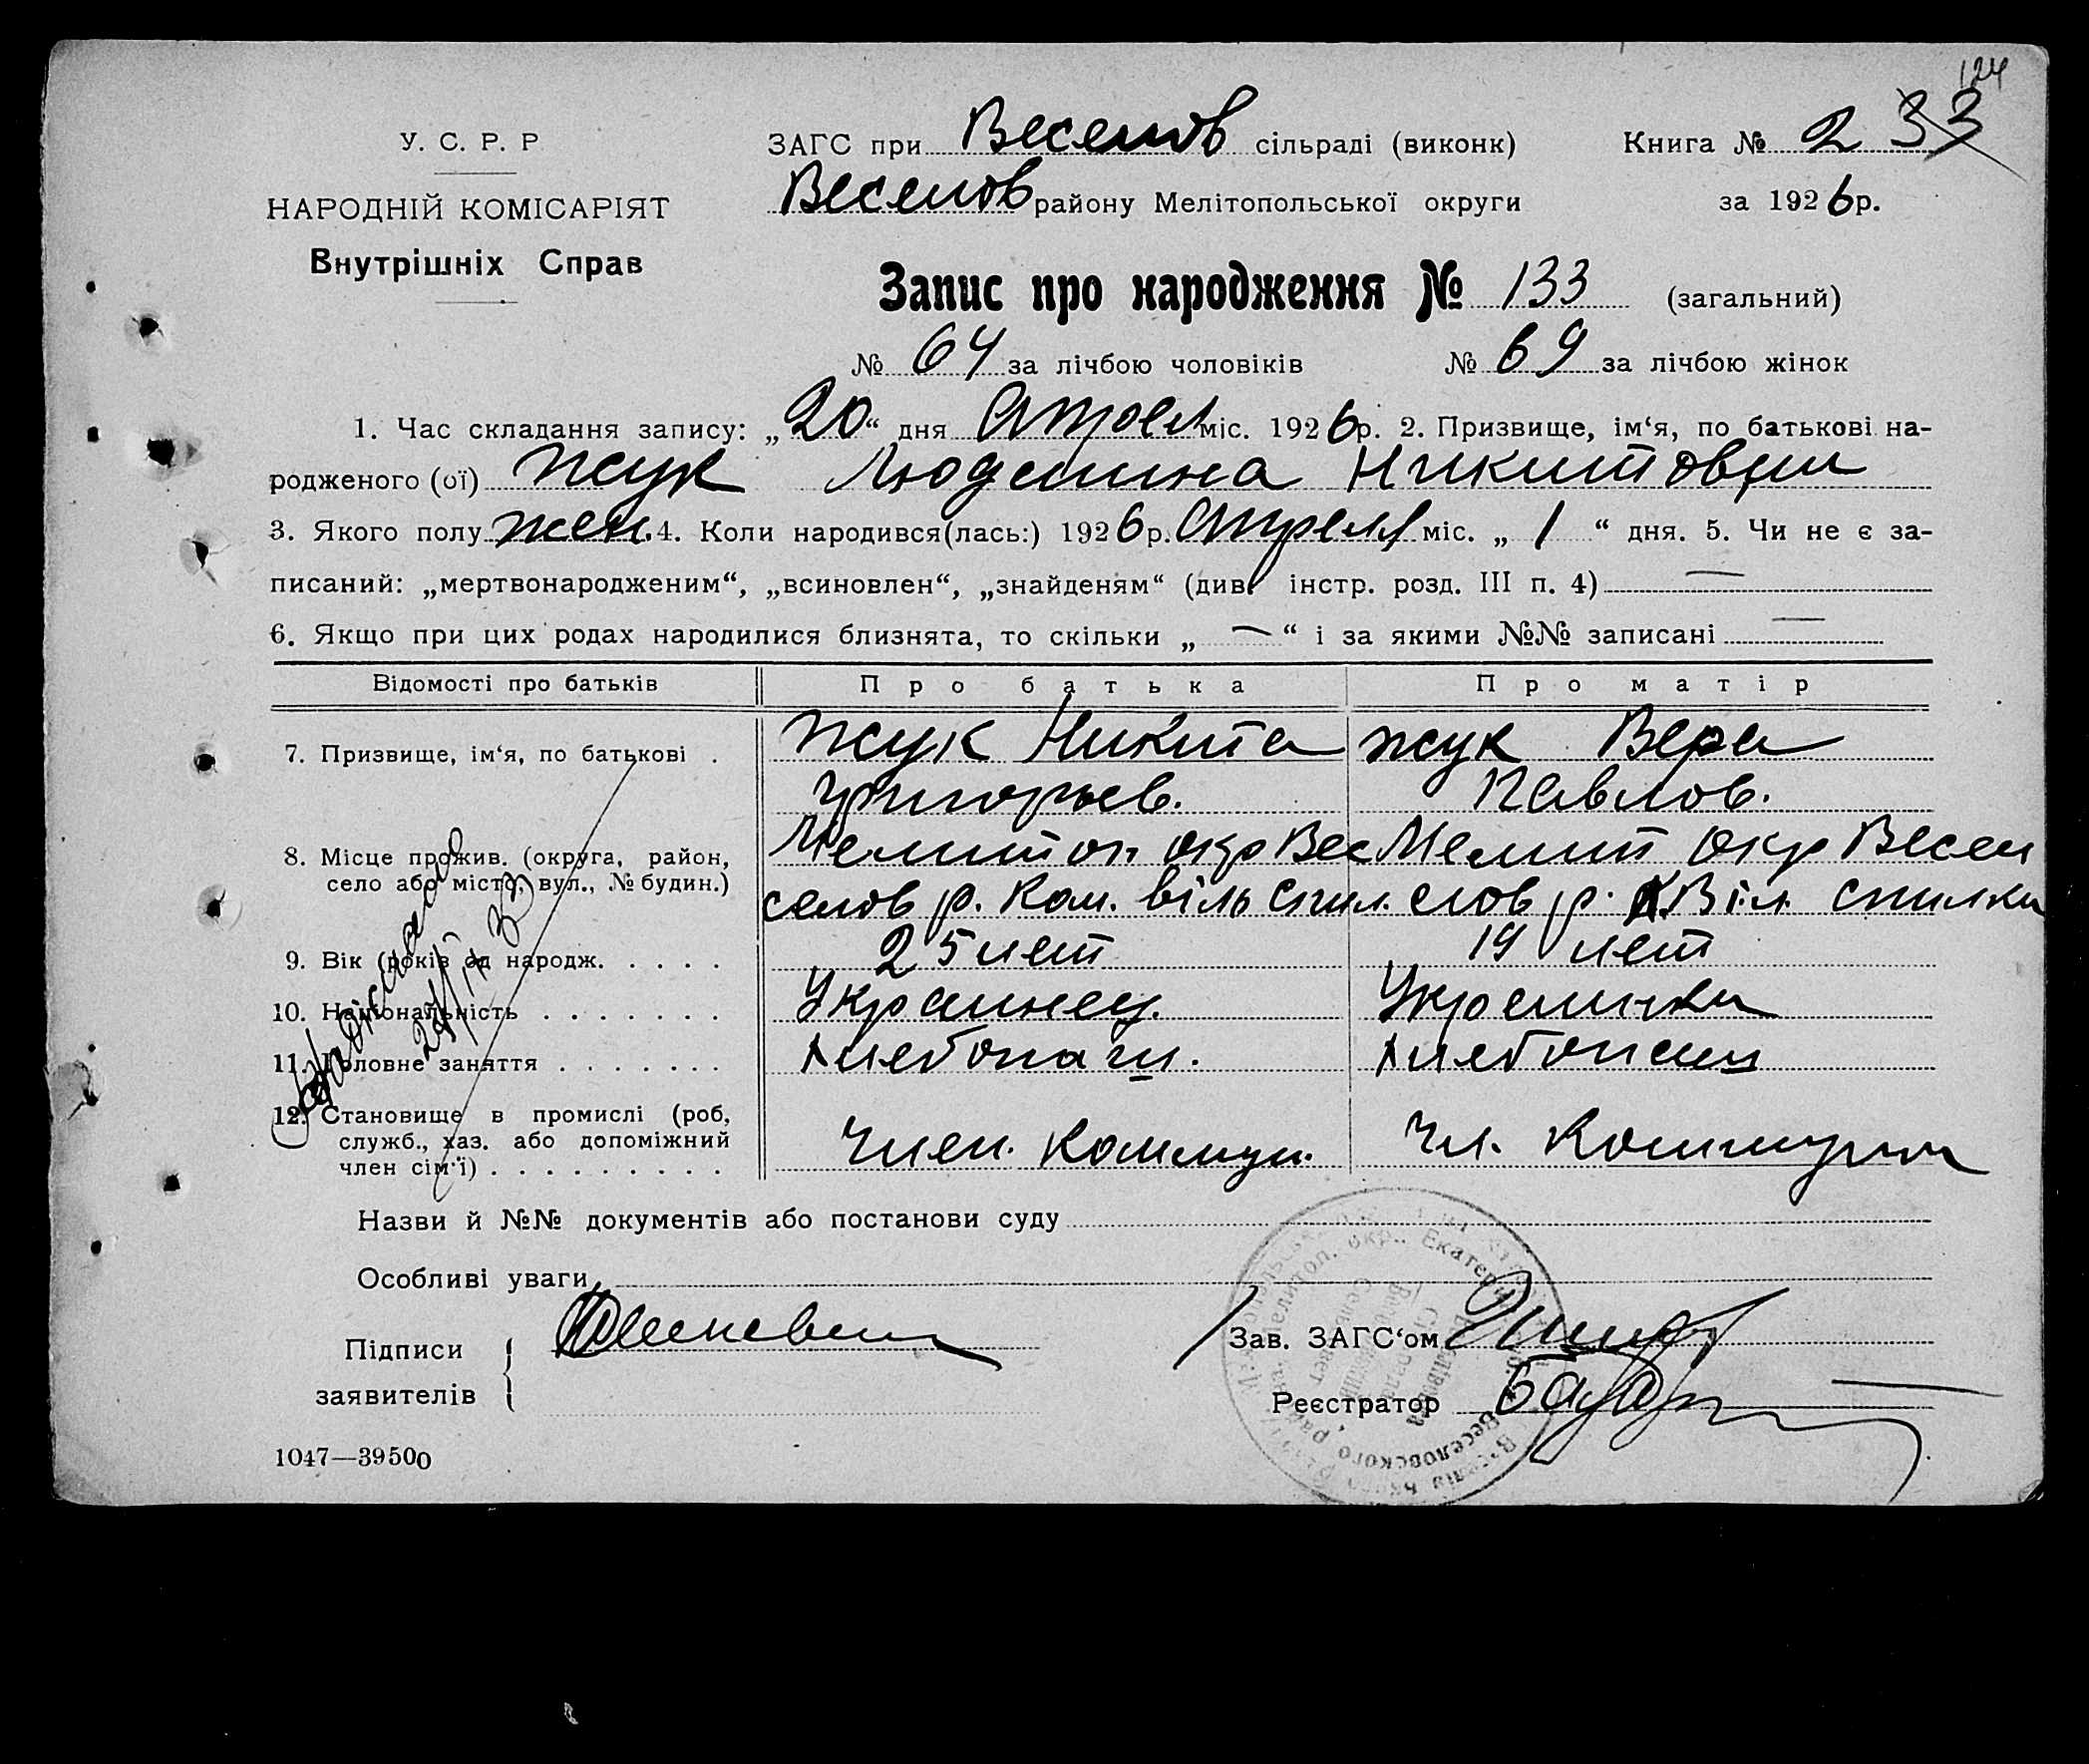 124
У. С. Р. Р
НАРОДНІЙ КОМІСАРІЯТ
Внутрішніх Справ
ЗАГС при Веселов сільраді (виконк) Книга № 2 33
Веселов району Мелітопольської округи за 1926р.
Запис про народження № 133 (загальний)
№ 64 за лічбою чоловіків № 69 за лічбою жінок
1. Час складання запису: „20“ дня Апрел міс. 1926р. 2. Призвище, ім‘я, по батькові на-
родженого (ої) Жук Людмила Никитовны
3. Якого полу жен. 4. Коли народився(лась:) 1926р. Апреля міс. „ 1 “ дня. 5. Чи не є за-
писаний: „мертвонародженим“, „всиновлен“, „знайденям“ (див. інстр. розд. III п. 4) —
6. Якщо при цих родах народилися близнята, то скільки „ — “ і за якими №№ записані —
Відомості про батьків Про батька Про матір
7. Призвище, ім‘я, по батькові . Жук Никита Жук Вера
Григорьев. Павлов.
8. Місце прожив. (округа, район, Мелитоп окр Вес Мелит окр Весел
село або місто, вул., № будин.) селов р. Ком. віль спил. елов р. К Віл. спилки
9. Вік (років од народж. . . . . 25 лет 19 лет
10. Національність . . . . . . . Украинец. Украинка
11. Головне заняття . . . . . . . Хлебопаш. Хлебопаш
12. Становище в промислі (роб,
служб., хаз. або допоміжний Член. Коммун. Чл. Коммуны
член сім‘ї) . . . . . . . . .
Назви й №№ документів або постанови суду
Особливі уваги
Підписи
заявителів
Зав. ЗАГС‘ом
Реєстратор
1047—39500